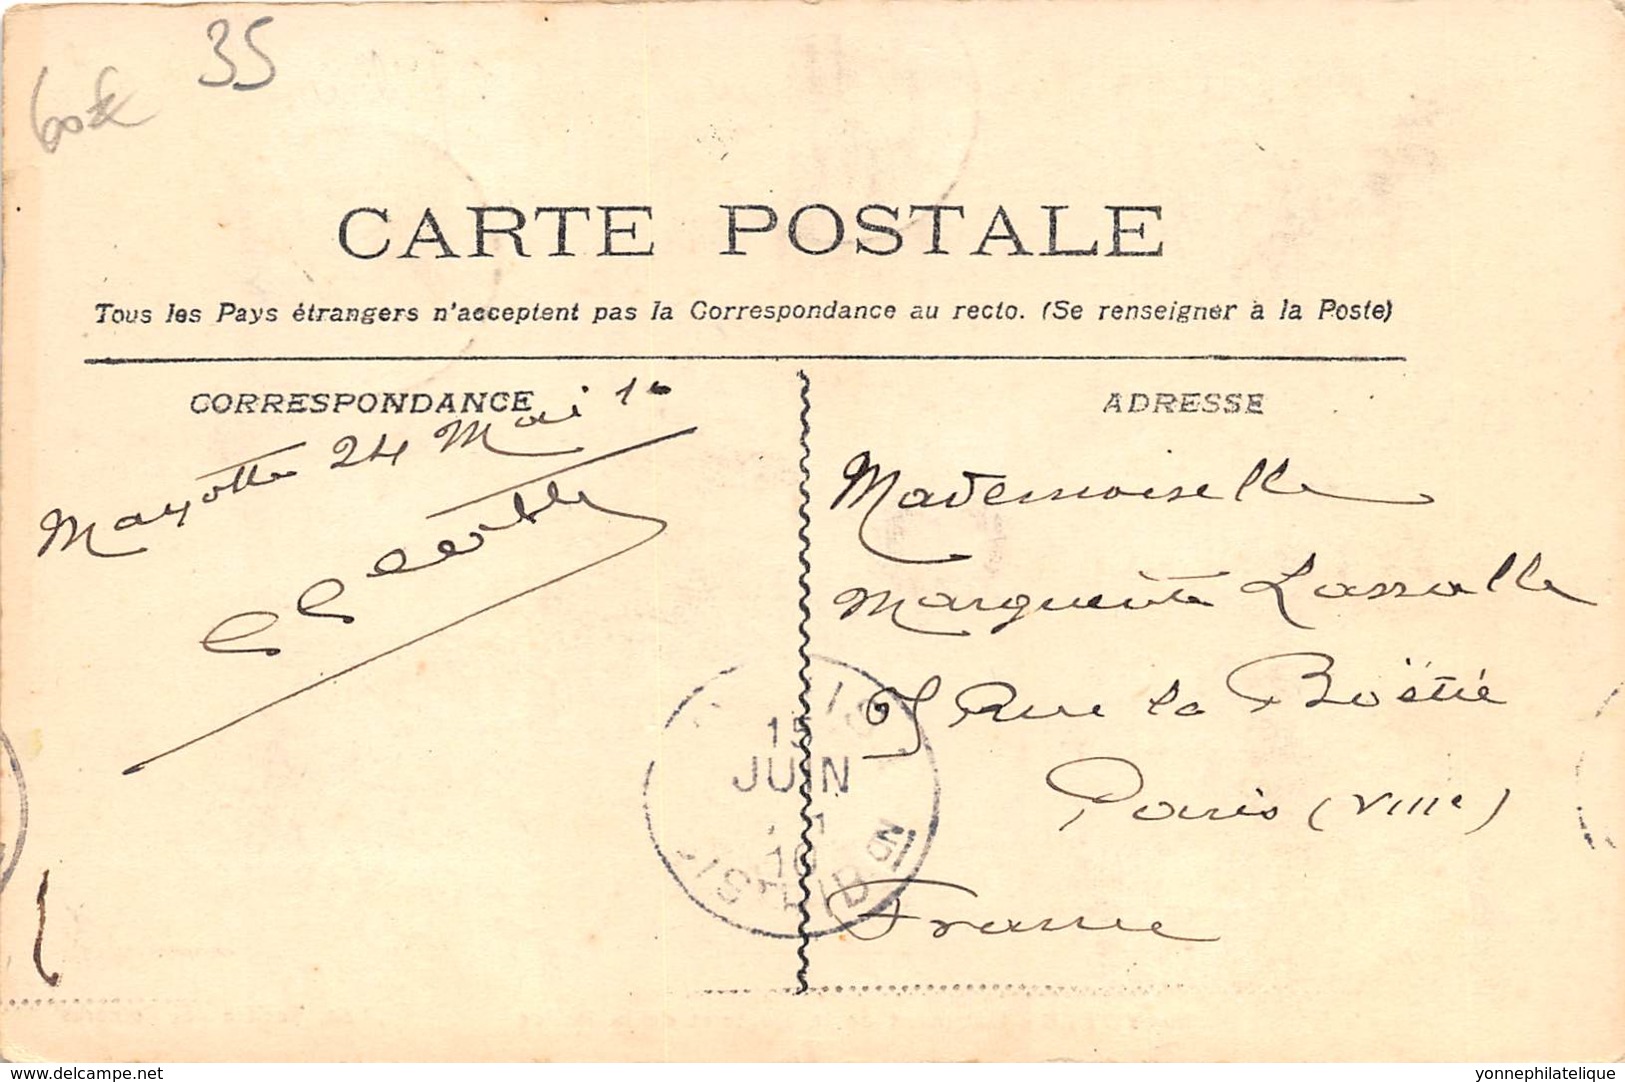 35
60€
CARTE POSTALE
Tous les Pays étrangers n'acceptent pas la Correspondance au recto. (Se renseigner à la Poste)
CORRESPONDANCE
Mayotte 24 Mai 10
ADRESSE
Mademoiselle
Marguerite Lassalle
Rue la Boëtie
Paris (VIIIe)
France
15
JUIN
10
delcampe.net
yonnephilatelique